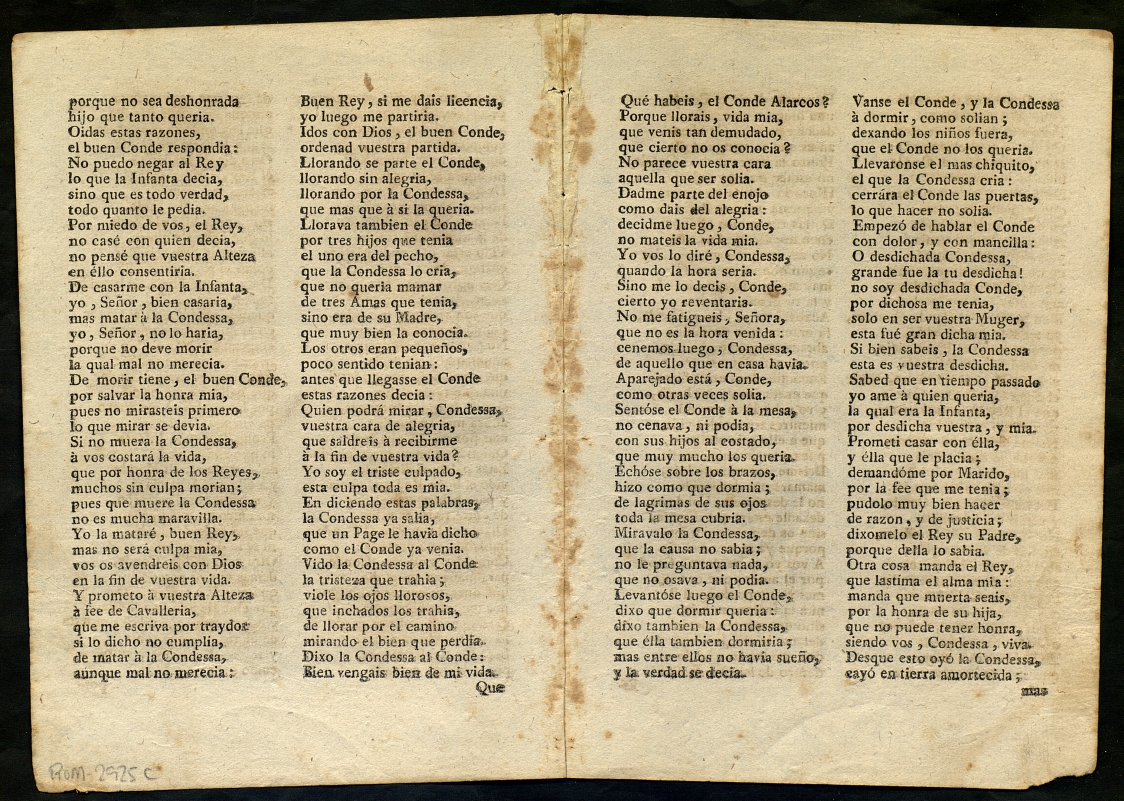 porque no sea deshonrada
hijo que tanto queria.
Oidas estas razones,
el buen Conde respondia:
No puedo negar al Rey
lo que la Infanta decia,
sino que es todo verdad,
todo quanto le pedia.
Por miedo de vos, el Rey,
no casé con quien decia,
no pensé que vuestra Alteza
en éllo consentiria.
De casarme con la Infanta,
yo, Señor, bien casaria,
mas matar à la Condessa,
yo, Señor, no lo haria,
porque no deve morir
la qual mal no merecia.
De morir tiene, el buen Conde,
por salvar la honra mia,
pues no mirasteis primero
lo que mirar se devia.
Si no muera la Condessa,
à vos costará la vida,
que por honra de los Reyes,
muchos sin culpa morian;
pues que muere la Condessa
no es mucha maravilla.
Yo la mataré, buen Rey,
mas no será culpa mia,
vos os avendreis con Dios
en la fin de vuestra vida.
Y prometo à vuestra Alteza
à fee de Cavalleria,
que me escriva por traydor
si lo dicho no cumplia,
de matar à la Condessa,
aunque mal no merecia:
Buen Rey, si me dais licencia,
yo luego me partiria.
Idos con Dios, el buen Conde,
ordenad vuestra partida.
Llorando se parte el Conde,
llorando sin alegria,
llorando por la Condessa,
que mas que à si la queria.
Llorava tambien el Conde
por tres hijos que tenia
el uno era del pecho,
que la Condessa lo cria,
que no queria mamar
de tres Amas que tenia,
sino era de su Madre,
que muy bien la conocia.
Los otros eran pequeños,
poco sentido tenian:
antes que llegasse el Conde
estas razones decia:
Quien podrá mirar, Condessa,
vuestra cara de alegria,
que saldreis à recibirme
à la fin de vuestra vida?
Yo soy el triste culpado,
esta culpa toda es mia.
En diciendo estas palabras,
la Condessa ya salia,
que un Page le havia dicho
como el Conde ya venia.
Vido la Condessa al Conde
la tristeza que trahia;
viole los ojos llorosos,
que inchados los trahia,
de llorar por el camino
mirando el bien que perdia.
Dixo la Condessa al Conde:
Bien vengais bien de mi vida.
Que
Qué habeis, el Conde Alarcos?
Porque llorais, vida mia,
que venis tan demudado,
que cierto no os conocia?
No parece vuestra cara
aquella que ser solia.
Dadme parte del enojo
como dais del alegria:
decidme luego, Conde,
no mateis la vida mia.
Yo vos lo diré, Condessa,
quando la hora seria.
Sino me lo decis, Conde,
cierto yo reventaria.
No me fatigueis, Señora,
que no es la hora venida:
cenemos luego, Condessa,
de aquello que en casa havia.
Aparejado está, Conde,
como otras veces solia.
Sentóse el Conde à la mesa,
no cenava, ni podia,
con sus hijos al costado,
que muy mucho los queria.
Echóse sobre los brazos,
hizo como que dormia;
de lagrimas de sus ojos
toda la mesa cubria.
Miravalo la Condessa,
que la causa no sabia;
no le preguntava nada,
que no osava, ni podia.
Levantóse luego el Conde,
dixo que dormir queria:
dixo tambien la Condessa,
que élla tambien dormiria;
mas entre ellos no havia sueño,
y la verdad se decia.
Vanse el Conde, y la Condessa
à dormir, como solian;
dexando los niños fuera,
que el Conde no los queria.
Llevaronse el mas chiquito,
el que la Condessa cria:
cerrára el Conde las puertas,
lo que hacer no solia.
Empezó de hablar el Conde
con dolor, y con mancilla:
O desdichada Condessa,
grande fue la tu desdicha!
no soy desdichada Conde,
por dichosa me tenia,
solo en ser vuestra Muger,
esta fué gran dicha mia.
Si bien sabeis, la Condessa
esta es vuestra desdicha.
Sabed que en tiempo passado
yo ame à quien queria,
la qual era la Infanta,
por desdicha vuestra, y mia.
Prometi casar con élla,
y élla que le placia;
demandóme por Marido,
por la fee que me tenia;
pudolo muy bien hacer
de razon, y de justicia;
dixomelo el Rey su Padre,
porque della lo sabia.
Otra cosa manda el Rey,
que lastima el alma mia:
manda que muerta seais,
por la honra de su hija,
que no puede tener honra,
siendo vos, Condessa, viva.
Desque esto oyó la Condessa,
cayó en tierra amortecida;
mas
ROM-2925 C